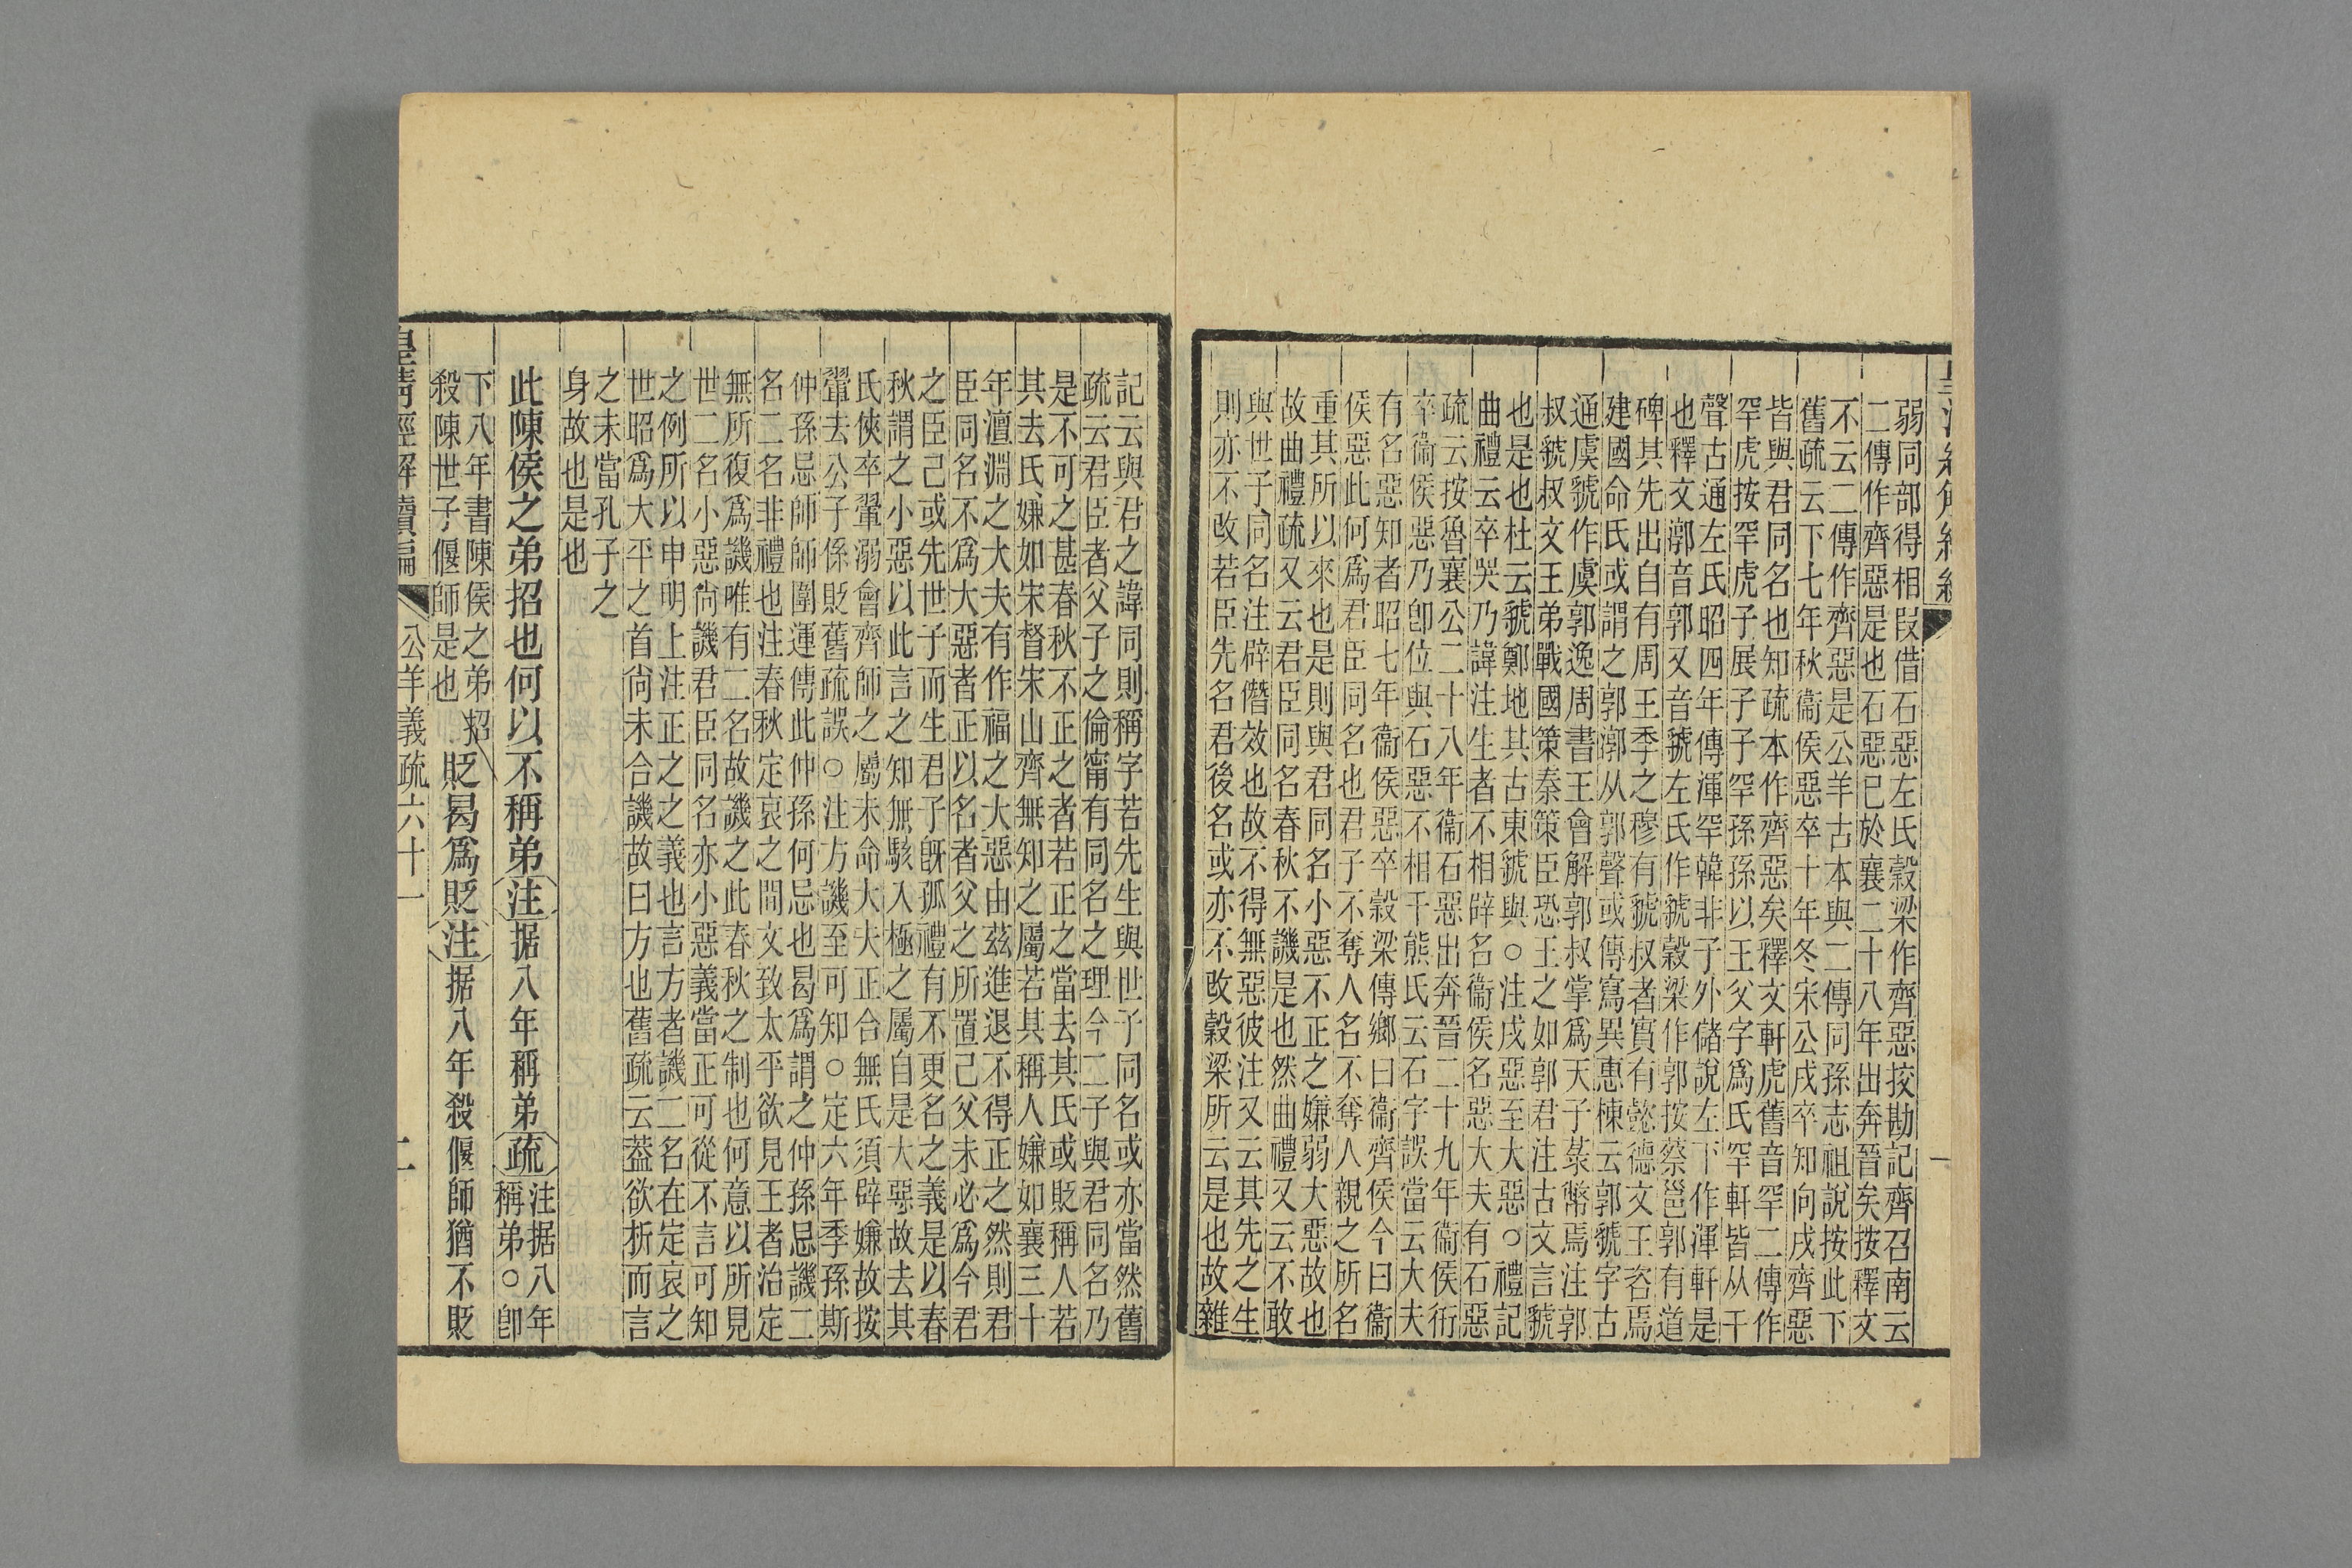 弱同部得相叚借石惡左氏穀梁作齊惡挍勘記齊召南云
二傳作齊惡是也石惡已於襄二十八年出奔晉矣按釋文
不云二傳作齊惡是公羊古本與二傳同孫志祖說按此下
舊疏云下七年秋衞侯惡卒十年冬宋公戌卒知向戌齊惡
皆與君同名也知疏本作齊惡矣釋文軒虎舊音罕二傳作
罕虎按罕虎子展子子罕孫以王父字爲氏罕軒皆从干
聲古通左氏昭四年傳渾罕韓非子外儲說左下作渾軒是
也釋文漷音郭又音虢左氏作虢穀梁作郭按蔡邕郭有道
碑其先出自有周王季之穆有虢叔者實有懿德文王咨焉
建國命氏或謂之郭漷从郭聲或傳寫異惠棟云郭虢字古
通虞虢作虞郭逸周書王會解郭叔掌爲天子菉幣焉注郭
叔虢叔文王弟戰國策秦策臣恐王之如郭君注古文言虢
也是也杜云虢鄭地其古東虢與○注戌惡至大惡○禮記
曲禮云卒哭乃諱注生者不相辟名衞侯名惡大夫有石惡
疏云按魯襄公二十八年衞石惡出奔晉二十九年衞侯衎
卒衞侯惡乃卽位與石惡不相干熊氏云石字誤當云大夫
有名惡知者昭七年衞侯惡卒穀梁傳鄉曰衞齊侯今曰衞
侯惡此何爲君臣同名也君子不奪人名不奪人親之所名
重其所以來也是則與君同名小惡不正之嫌弱大惡故也
故曲禮疏又云君臣同名春秋不譏是也然曲禮又云不敢
與世子同名注辟僭效也故不得無惡彼注又云其先之生
則亦不改若臣先名君後名或亦不改穀梁所云是也故雜
記云與君之諱同則稱字若先生與世子同名或亦當然舊
疏云君臣者父子之倫甯有同名之理今二子與君同名乃
是不可之甚春秋不正之者若正之當去其氏或貶稱人若
其去氏嫌如宋督宋山齊無知之屬若其稱人嫌如襄三十
年澶淵之大夫有作福之大惡由茲進退不得正之然則君
臣同名不爲大惡者正以名者父之所置己父未必爲今君
之臣己或先世子而生君子旣孤禮有不更名之義是以春
秋謂之小惡以此言之知無駭入極之屬自是大惡故去其
氏俠卒翬溺會齊師之屬未命大夫正合無氏須辟嫌故按
翬去公子係貶舊疏誤○注方譏至可知○定六年季孫斯
仲孫忌師師圍運傳此仲孫何忌也曷爲謂之仲孫忌譏二
名二名非禮也注春秋定哀之間文致太平欲見王者治定
無所復爲譏唯有二名故譏之此春秋之制也何意以所見
世二名小惡尙譏君臣同名亦小惡義當正可從不言可知
之例所以申明上注正之之義也言方者譏二名在定哀之
世昭爲大平之首尙未合譏故曰方也舊疏云蓋欲析而言
之未當孔子之
身故也是也
此陳侯之弟招也何以不稱弟注据八年稱弟疏注据八年
稱弟○卽
下八年書陳侯之弟招
殺陳世子偃師是也
貶曷爲貶注据八年殺偃師猶不貶
皇淸經解續編
公羊義疏六十一
二